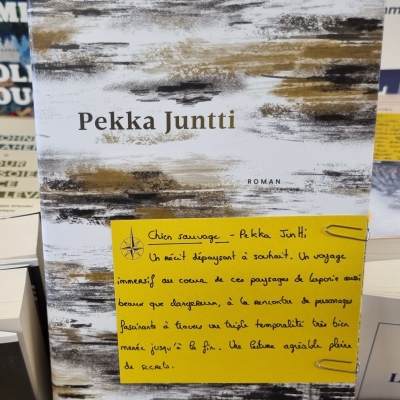 Pekka Juntti
ROMAN
Chien sauvage - Pekka Juntti
Un récit dépaysant à souhait. Un voyage
immersif au coeur de ces paysages de Laponie aussi
beaux que dangereux, à la rencontre de personnages
fascinants à travers une triple temporalité très bien
menée jusqu'à la fin. Une lecture agréable pleine
de secrets.